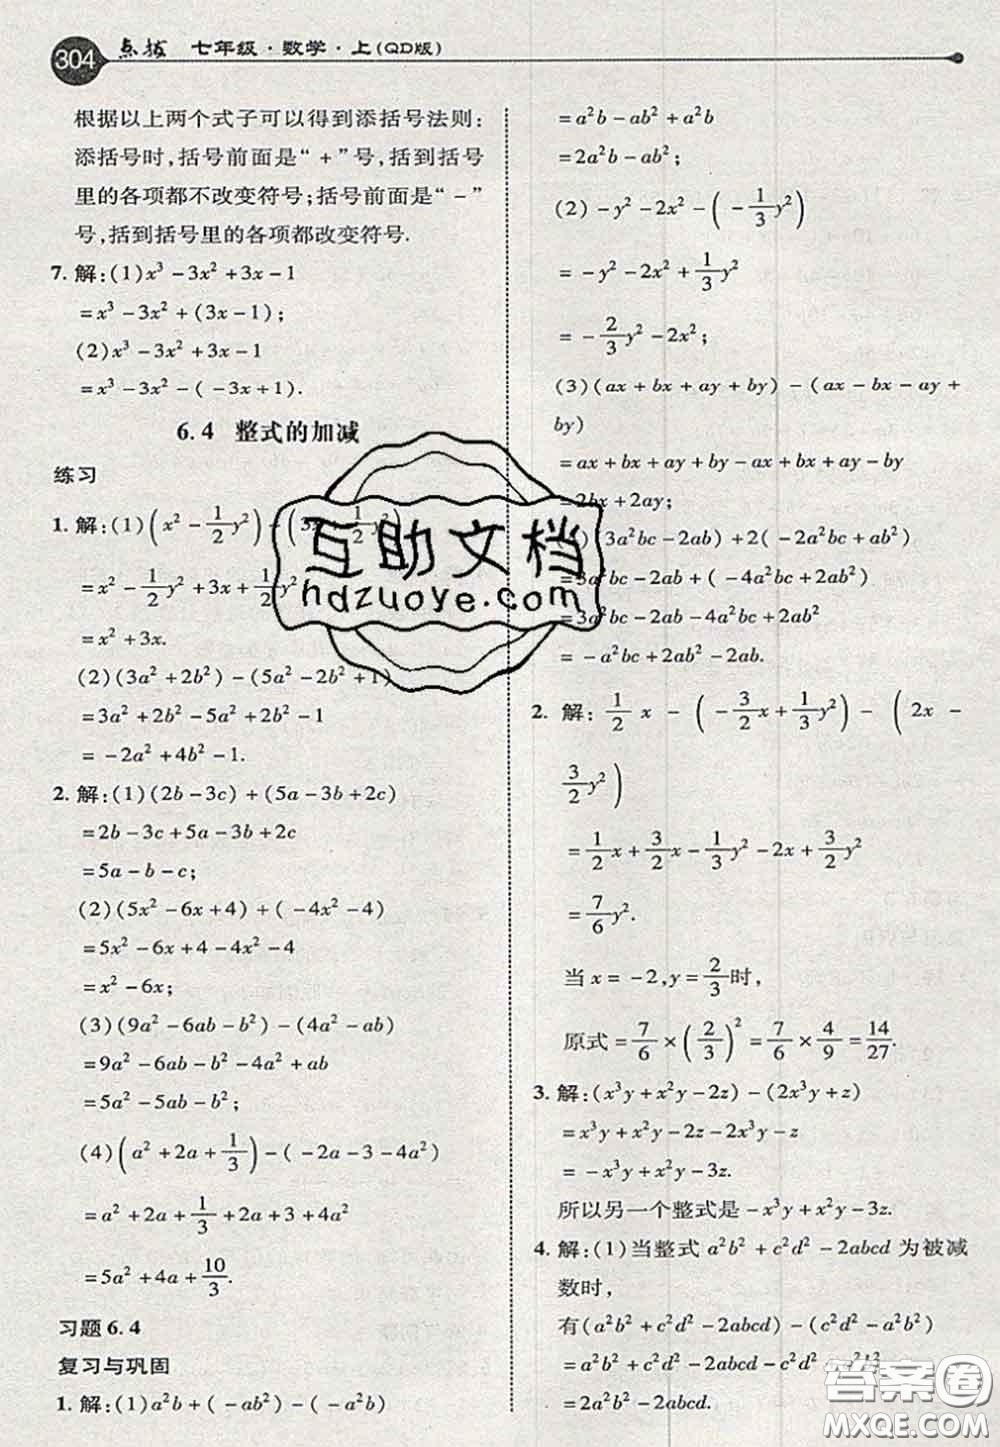 304 点拨 七年级·数学·上(QD版)
根据以上两个式子可以得到添括号法则:
添括号时,括号前面是“+”号,括到括号
里的各项都不改变符号;括号前面是“-”
号,括到括号里的各项都改变符号.
7. 解:(1)x³-3x²+3x-1
=x³-3x²+(3x-1);
(2)x³-3x²+3x-1
=x³-3x²-(-3x+1).
6.4 整式的加减
练习
1. 解:(1)(x²-1/2y²)-(3x-1/2y²)
=x²-1/2y²+3x+1/2y²
=x²+3x.
(2)(3a²+2b²)-(5a²-2b²+1)
=3a²+2b²-5a²+2b²-1
=-2a²+4b²-1.
2. 解:(1)(2b-3c)+(5a-3b+2c)
=2b-3c+5a-3b+2c
=5a-b-c;
(2)(5x²-6x+4)+(-4x²-4)
=5x²-6x+4-4x²-4
=x²-6x;
(3)(9a²-6ab-b²)-(4a²-ab)
=9a²-6ab-b²-4a²+ab
=5a²-5ab-b²;
(4)(a²+2a+1/3)-(-2a-3-4a²)
=a²+2a+1/3+2a+3+4a²
=5a²+4a+10/3.
习题6.4
复习与巩固
1. 解:(1)a²b+(-ab²)-(-a²b)
=a²b-ab²+a²b
=2a²b-ab²;
(2)-y²-2x²-(-1/3y²)
=-y²-2x²+1/3y²
=-2/3y²-2x²;
(3)(ax+bx+ay+by)-(ax-bx-ay+
by)
=ax+bx+ay+by-ax+bx+ay-by
=2bx+2ay;
(3a²bc-2ab)+2(-2a²bc+ab²)
=3a²bc-2ab+(-4a²bc+2ab²)
=3a²bc-2ab-4a²bc+2ab²
=-a²bc+2ab²-2ab.
2. 解:1/2x-(-3/2x+1/3y²)-(2x-
3/2y²)
=1/2x+3/2x-1/3y²-2x+3/2y²
=7/6y².
当x=-2,y=2/3时,
原式=7/6×(2/3)²=7/6×4/9=14/27.
3. 解:(x³y+x²y-2z)-(2x³y+z)
=x³y+x²y-2z-2x³y-z
=-x³y+x²y-3z.
所以另一个整式是-x³y+x²y-3z.
4. 解:(1)当整式a²b²+c²d²-2abcd为被减
数时,
有(a²b²+c²d²-2abcd)-(c²d²-a²b²)
=a²b²+c²d²-2abcd-c²d²+a²b²
=2a²b²-2abcd.
互助文档
hdzuoye.com
答案圈
MXQE.COM